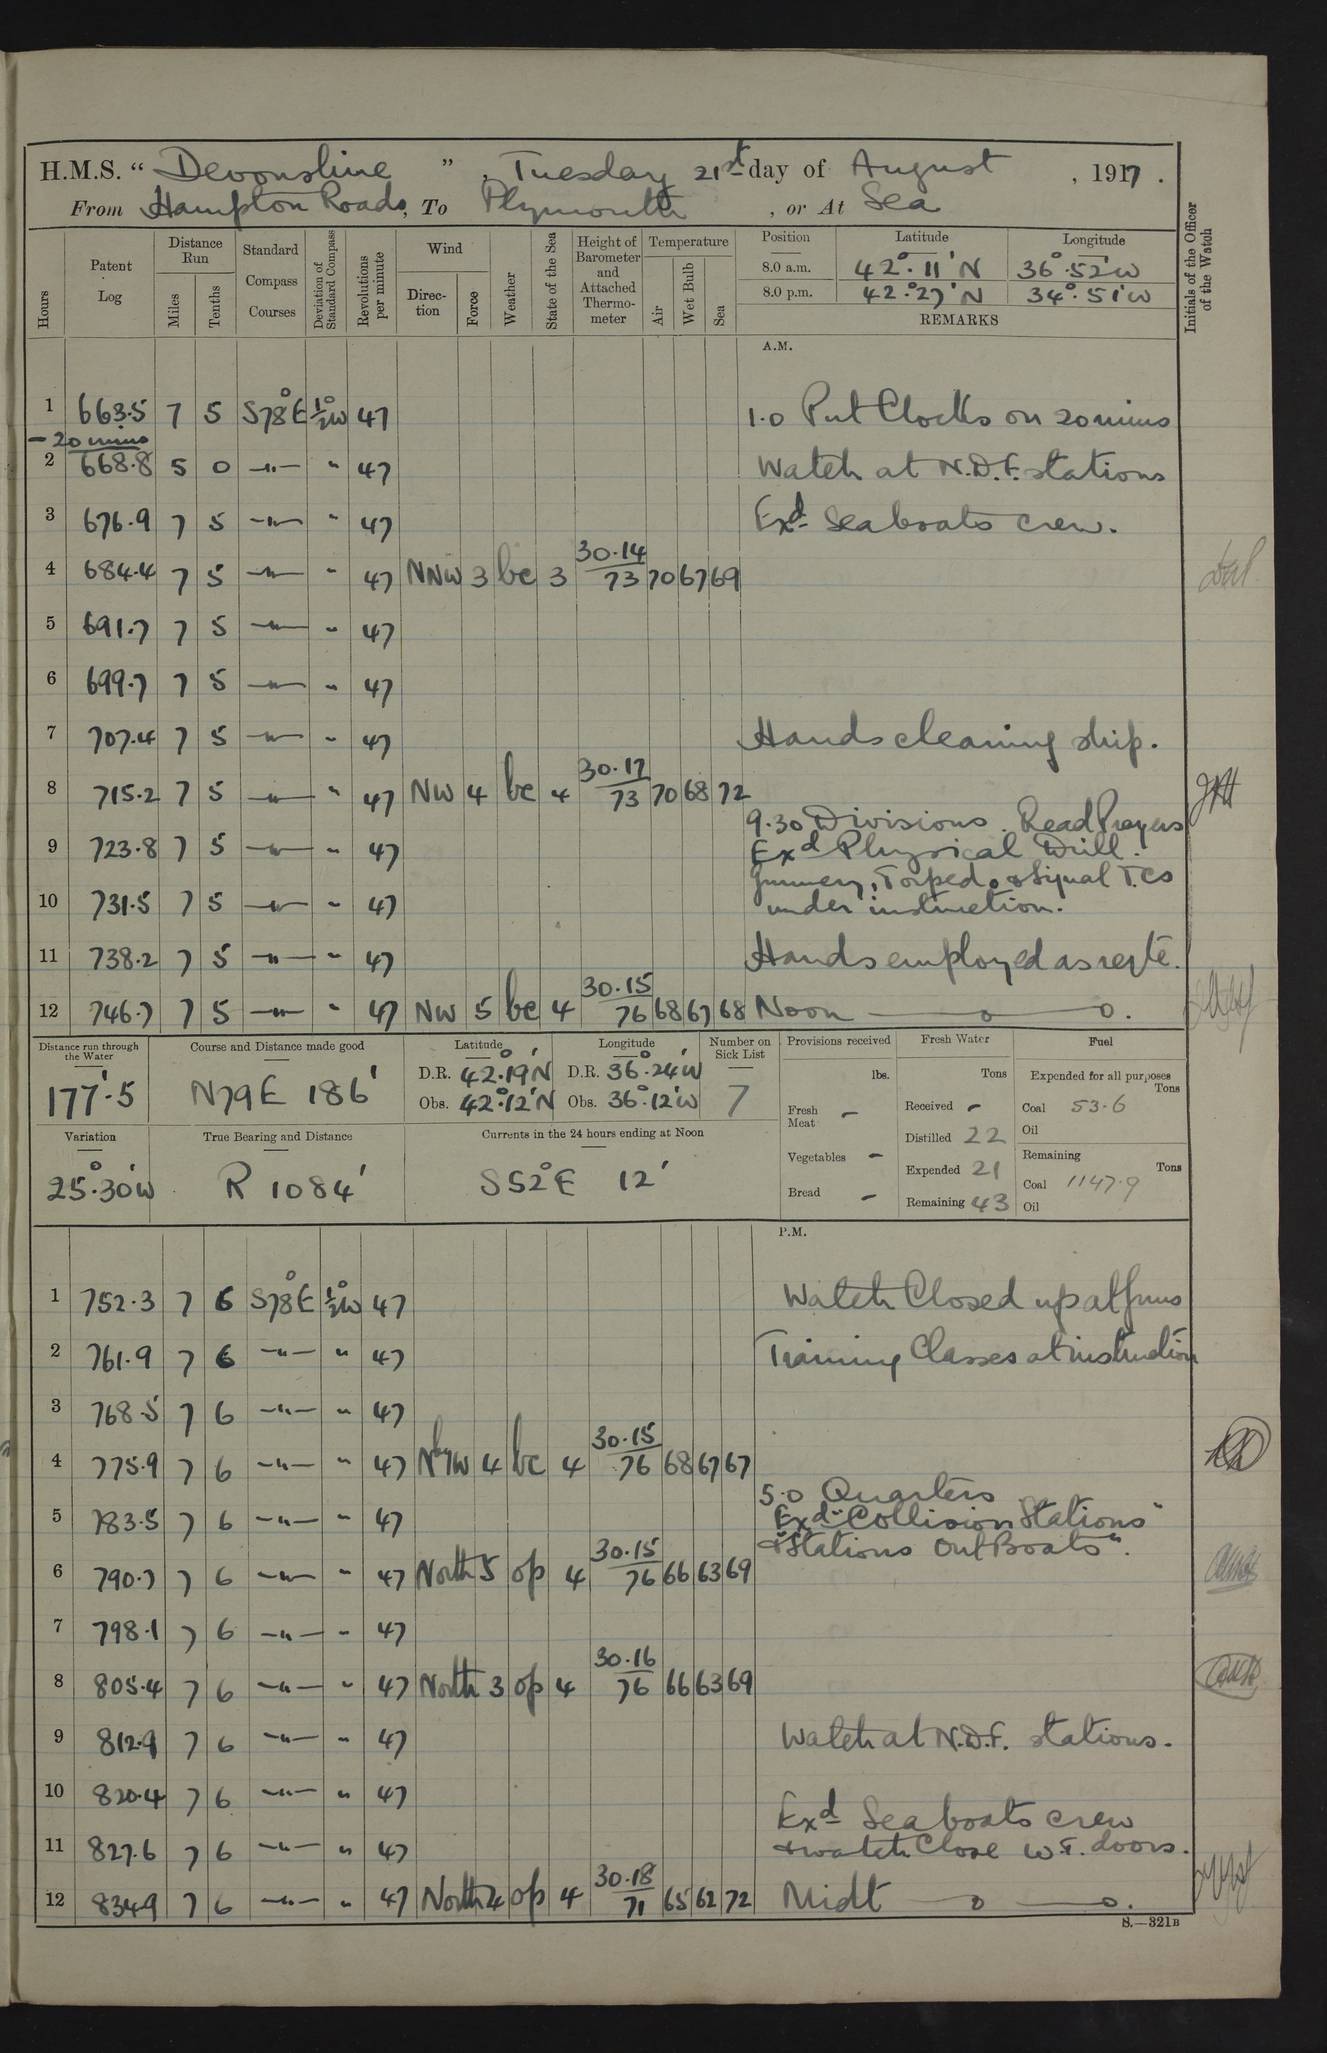 H.M.S. “ Devonshire ” , Tuesday 21st day of August , 1917 .
From Hampton Roads, To Plymouth , or At Sea
Hours Patent Log Distance Run Miles Tenths Standard Compass Courses Deviation of Standard Compass Revolutions per minute Wind Direc-tion Force Weather State of the Sea Height of Barometer and Attached Thermo-meter Temperature Air Wet Bulb Sea Position Latitude Longitude Initials of the Officer of the Watch
8.0 a.m. 42°.11'N 36°.52'W
8.0 p.m. 42.°27'N 34°.51'W
REMARKS
A.M.
1 663.5 7 5 S78°E ½°W 47 1.0 Put Clocks on 20 mins
- 20 mins
2 668.8 5 0 —"— " 47 Watch at N.D.F. stations
3 676.9 7 5 —"— " 47 Exd Seaboats crew.
4 684.4 7 5 —"— " 47 NNW 3 bc 3 30.14/73 70 67 69
5 691.7 7 5 —"— " 47
6 699.7 7 5 —"— " 47
7 707.4 7 5 —"— " 47 Hands cleaning ship.
8 715.2 7 5 —"— " 47 NW 4 bc 4 30.17/73 70 68 72
9.30 Divisions. Read Prayers
9 723.8 7 5 —"— " 47 Exd Physical Drill.
Gunnery, Torpedo & Signal T.Cs
10 731.5 7 5 —"— " 47 under instruction.
11 738.2 7 5 —"— " 47 Hands employed as reqte.
12 746.7 7 5 —"— " 47 NW 5 bc 4 30.15/76 68 67 68 Noon —o—o.
Distance run through the Water 177'.5
Course and Distance made good N79E 186'
Latitude D.R. 42°.19'N Obs. 42°.12'N
Longitude D.R. 36°.24'W Obs. 36°.12'W
Number on Sick List 7
Provisions received lbs.
Fresh Meat —
Vegetables —
Bread —
Fresh Water Tons
Received —
Distilled 22
Expended 21
Remaining 43
Fuel
Expended for all purposes Tons
Coal 53.6
Oil
Remaining Tons
Coal 1147.9
Oil
Variation 25°.30'W
True Bearing and Distance R 1084'
Currents in the 24 hours ending at Noon S52°E 12'
P.M.
1 752.3 7 6 S78°E ½°W 47 Watch Closed up at Guns
2 761.9 7 6 —"— " 47 Training Classes at instruction
3 768.5 7 6 —"— " 47
4 775.9 7 6 —"— " 47 NbyW 4 bc 4 30.15/76 68 67 67
5.0 Quarters
5 783.5 7 6 —"— " 47 Exd "Collision Stations"
& "Stations Out Boats".
6 790.7 7 6 —"— " 47 North 5 op 4 30.15/76 66 63 69
7 798.1 7 6 —"— " 47
8 805.4 7 6 —"— " 47 North 3 op 4 30.16/76 66 63 69
9 812.9 7 6 —"— " 47 Watch at N.D.F. stations.
10 820.4 7 6 —"— " 47
Exd Seaboats crew
11 827.6 7 6 —"— " 47 & watch Close W.T. doors.
12 834.9 7 6 —"— " 47 North 4 op 4 30.18/71 65 62 72 Midt —o—o.
S.—321B